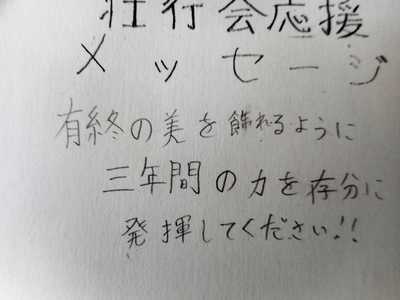 壮行会応援
メッセージ
有終の美を飾れるように
三年間の力を存分に
発揮してください!!